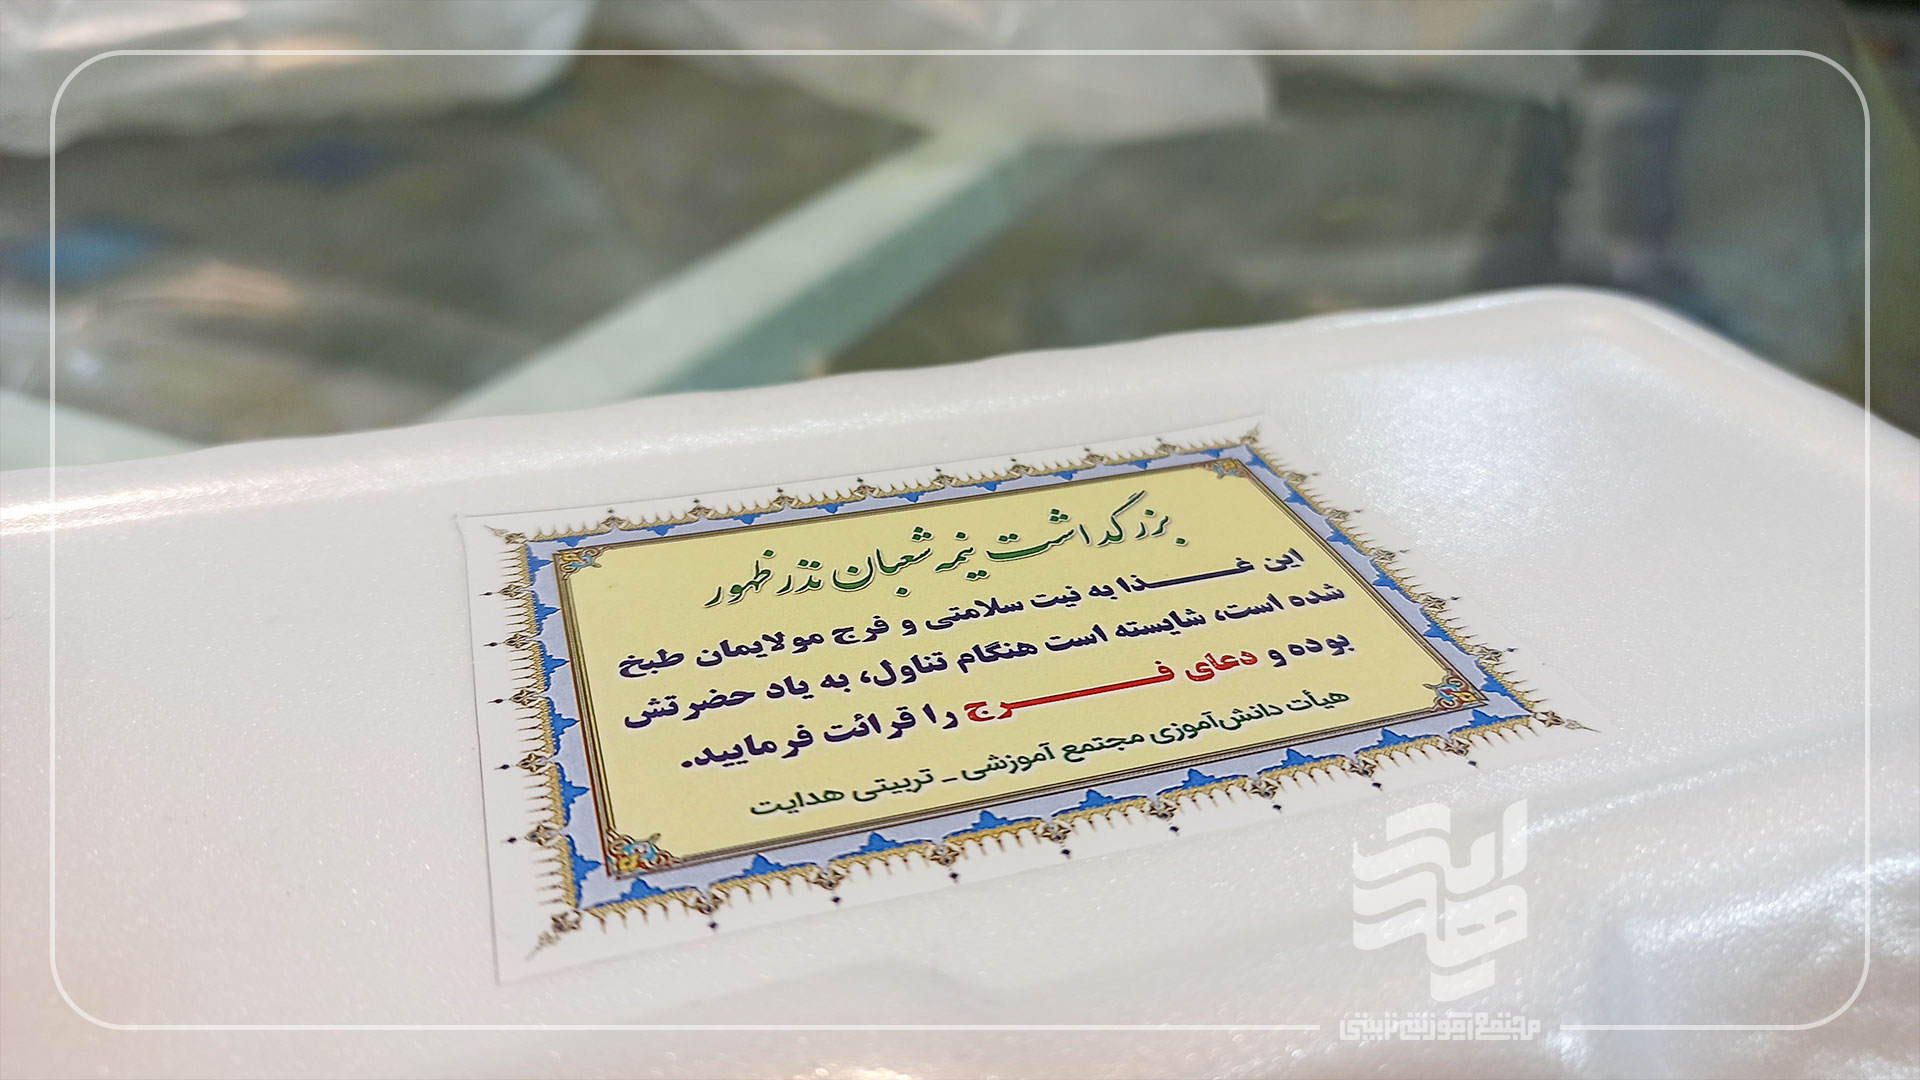 بزرگداشت نیمه شعبان نذر ظهور
این غذا به نیت سلامتی و فرج مولایمان طبخ
شده است، شایسته است هنگام تناول، به یاد حضرتش
بوده و دعای فرج را قرائت فرمایید.
هیأت دانش‌آموزی مجتمع آموزشی ـ تربیتی هدایت
هدایت
مجتمع آموزشی تربیتی